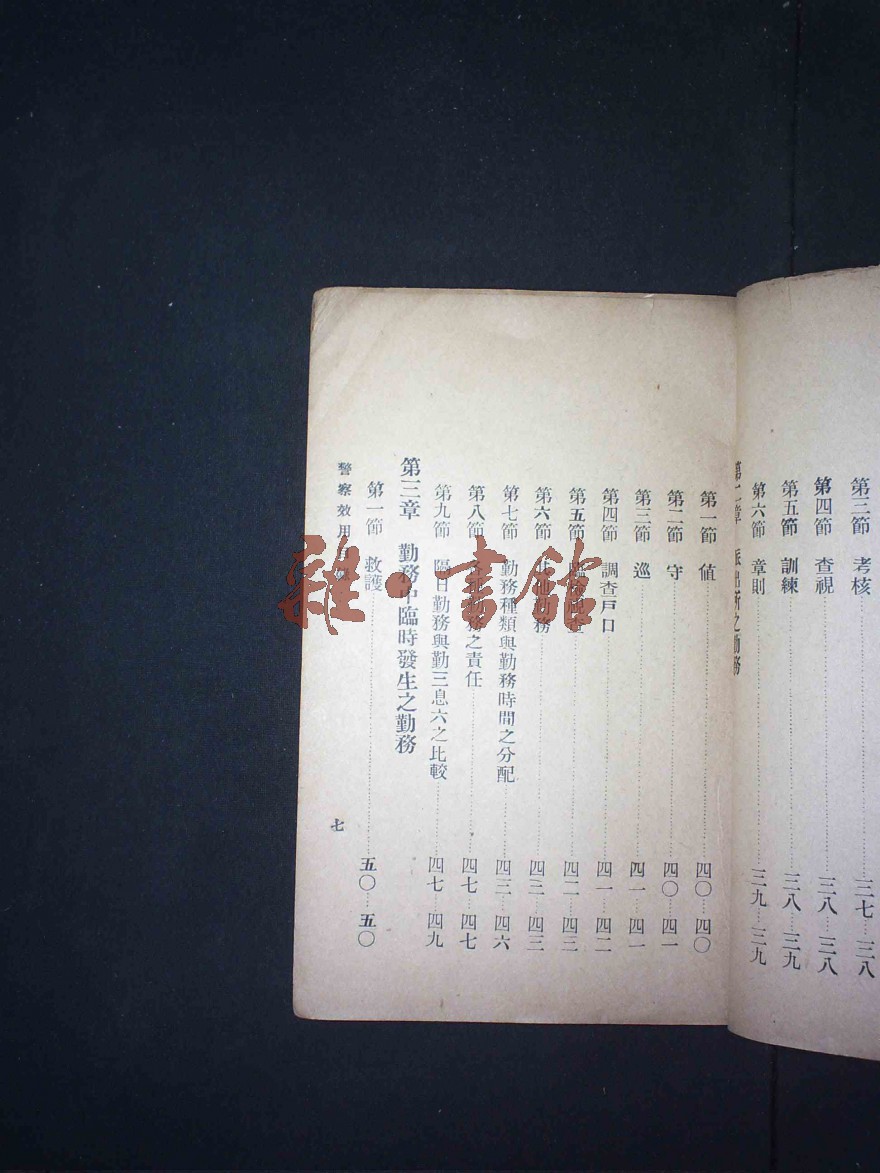 第三節 考核……三七…三八
第四節 查視……三八…三八
第五節 訓練……三八…三九
第六節 章則……三九…三九
第二章 派出所之勤務
第一節 値……四〇…四〇
第二節 守……四〇…四一
第三節 巡……四一…四一
第四節 調查戶口……四一…四二
第五節 臨檢視查……四二…四三
第六節 其他勤務……四三…四三
第七節 勤務種類與勤務時間之分配……四三…四六
第八節 勤務之責任……四七…四七
第九節 隔日勤務與勤三息六之比較……四七…四九
第三章 勤務中臨時發生之勤務
第一節 救護……五〇…五〇
警察效用目錄
七
雜·書館